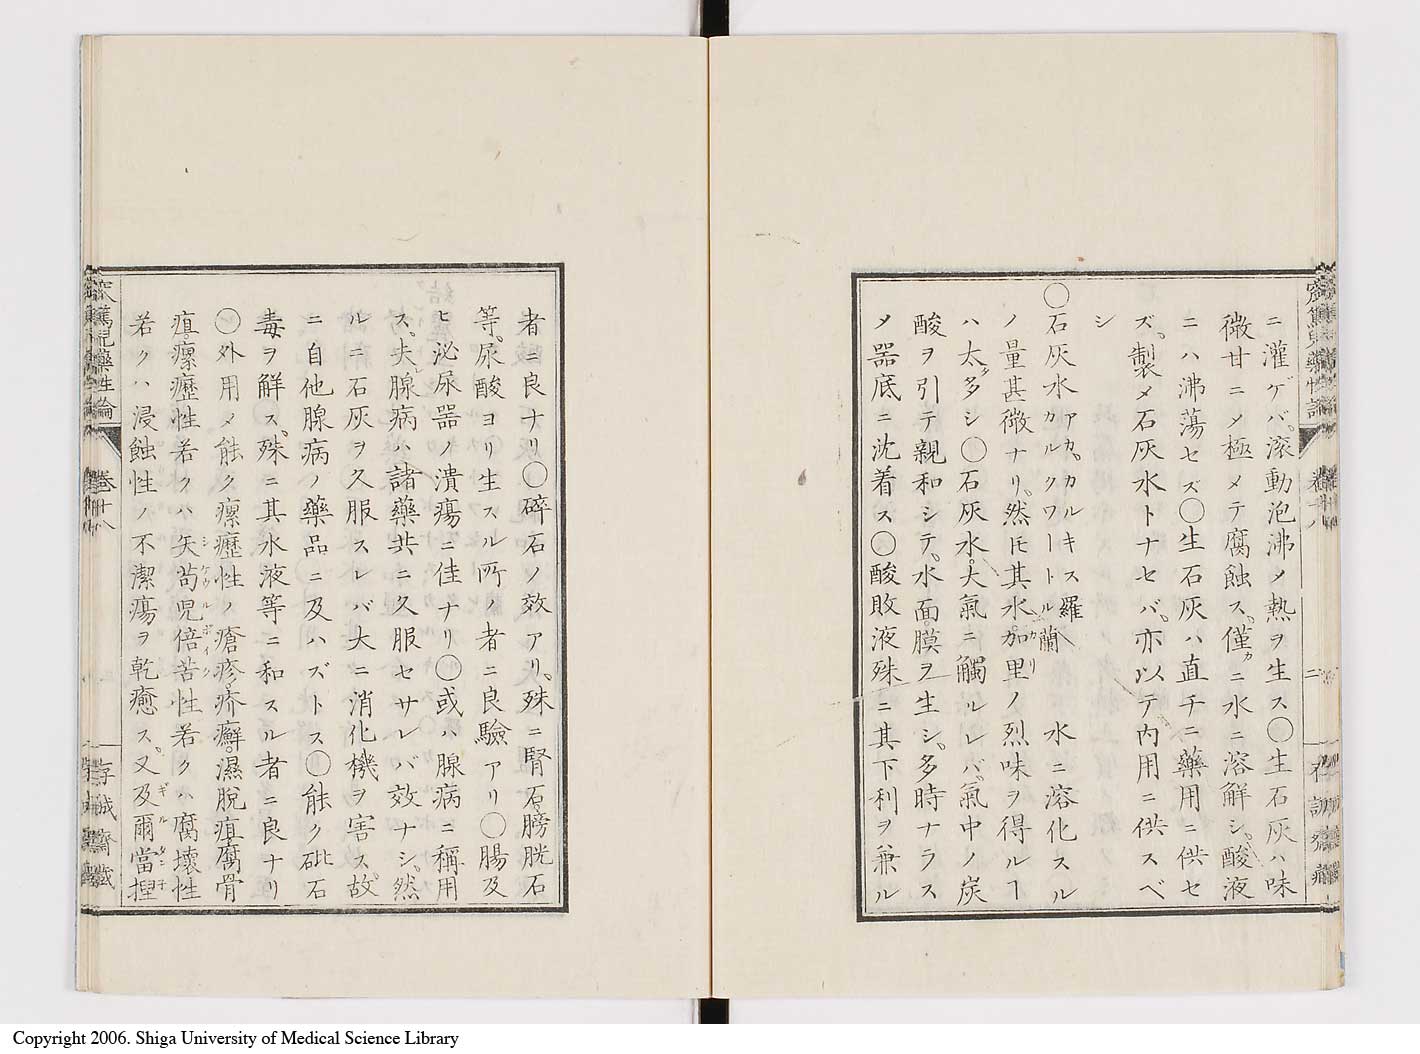 ニ灌ゲバ。滾動泡沸メ熱ヲ生ス〇生石灰ハ味
微甘ニメ極メテ腐蝕ス。僅カニ水ニ溶解シ。酸液
ニハ沸蕩セズ〇生石灰ハ直チニ藥用ニ供セ
ズ。製メ石灰水トナセバ。亦以テ内用ニ供スベ
シ
〇石灰水 アカ。カルキス羅 カルクワートル蘭 水ニ溶化スル
ノ量甚微ナリ。然𪜈其水。加里ノ烈味ヲ得ルヿ
ハ太多シ〇石灰水。大氣ニ觸ルレバ。氣中ノ炭
酸ヲ引テ親和シテ。水面膜ヲ生シ。多時ナラス
メ器底ニ沈着ス〇酸敗液殊ニ其下利ヲ兼ル
者ニ良ナリ〇碎石ノ效アリ。殊ニ腎石。膀胱石
等。尿酸ヨリ生スル所ノ者ニ良驗アリ〇腸及
ヒ泌尿器ノ潰瘍ニ佳ナリ〇或ハ腺病ニ稱用
ス。夫腺病ハ諸藥共ニ久服セサレバ效ナシ。然
ルニ石灰ヲ久服スレバ大ニ消化機ヲ害ス。故
ニ自他腺病ノ藥品ニ及ハズトス〇能ク砒石
毒ヲ解ス。殊ニ其水液等ニ和スル者ニ良ナリ
〇外用メ能ク瘰癧性ノ瘡疹。疥癬。濕脱疽。腐骨
疽。瘰癧性若クハ失苟兒倍苦性若クハ腐壊性
若クハ浸蝕性ノ不潔瘍ヲ乾癒ス。又及爾當揑
窊篤兒藥性論
卷十八
存誠齋藏
Copyright 2006. Shiga University of Medical Science Library